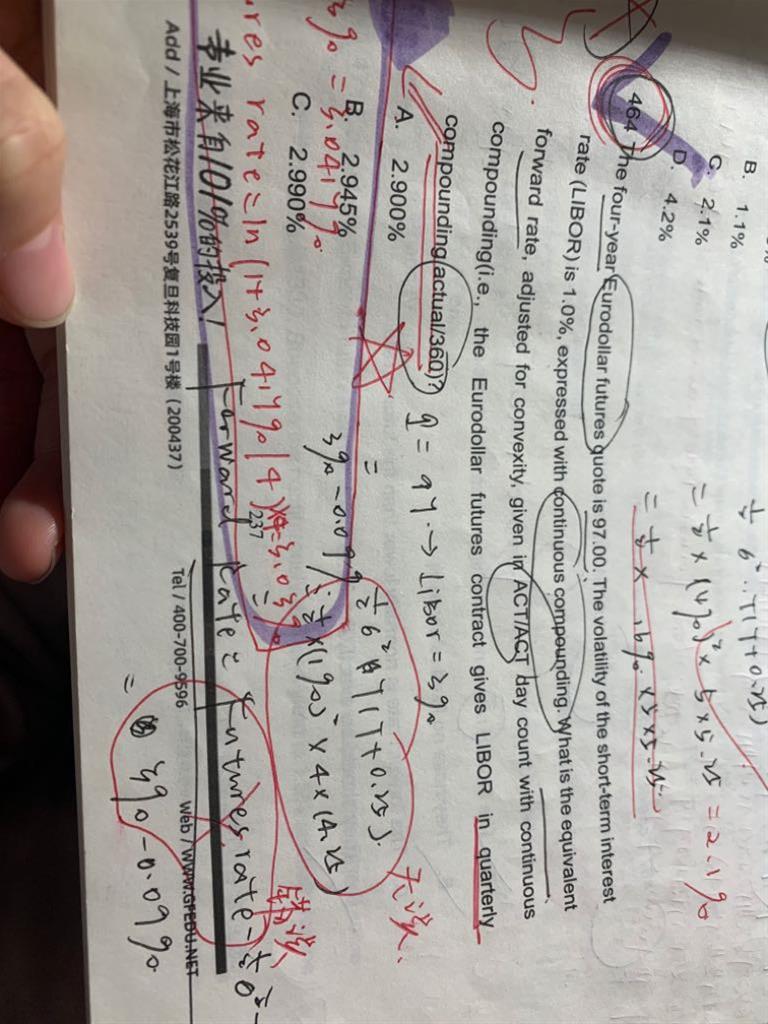 B. 1.1%
C. 2.1%
D. 4.2%
= 1/8 × (4%)² × 5 × 5.25 = 2.1%
464 The four-year Eurodollar futures quote is 97.00. The volatility of the short-term interest
rate (LIBOR) is 1.0%, expressed with continuous compounding. What is the equivalent
forward rate, adjusted for convexity, given in ACT/ACT day count with continuous
compounding(i.e., the Eurodollar futures contract gives LIBOR in quarterly
compounding(actual/360)?
A. 2.900%
B. 2.945%
C. 2.990%
9 = 97. → Libor = 3%
½σ² T(T+0.25).
½ × (1%)² × 4 × (4.25)
3% - 0.09%
无误.
3% = 3.0417%
res rate = ln(1+3.0417%/4)×4=3.03%
Forward rate = Futures rate - ½σ²
错误
= 3% - 0.09%
专业来自101%的投入!
237
Add / 上海市松花江路2539号复旦科技园1号楼 (200437)
Tel / 400-700-9596
Web / WWW.GFEDU.NET